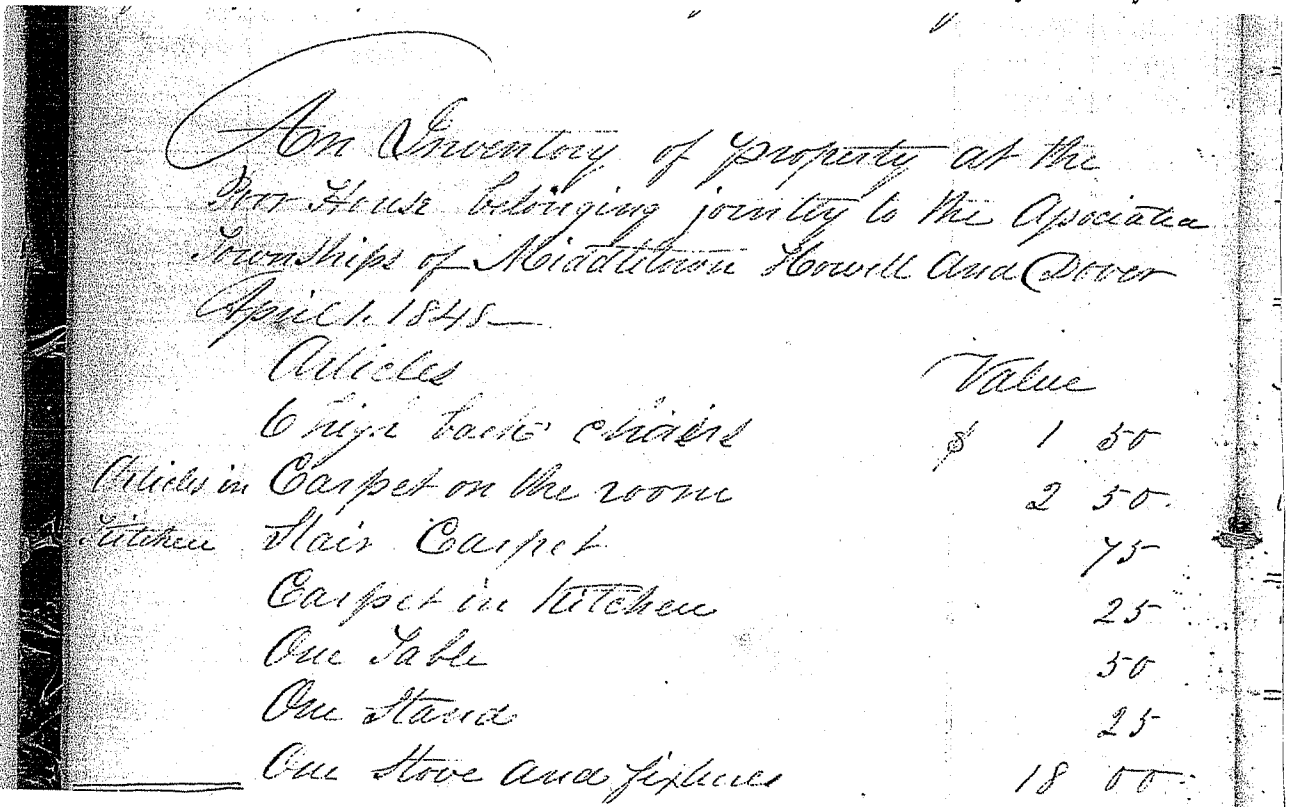 An Inventory of property at the
Poor House belonging jointly to the Associated
Townships of Middletown Howell And Dover
April 1. 1848
Articles Value
6 high back chairs $ 1 50
Articles in Carpet on the room 2 50
Kitchen Stair Carpet 75
Carpet in Kitchen 25
One Table 50
One Stand 25
One Stove and fixtures 18 00